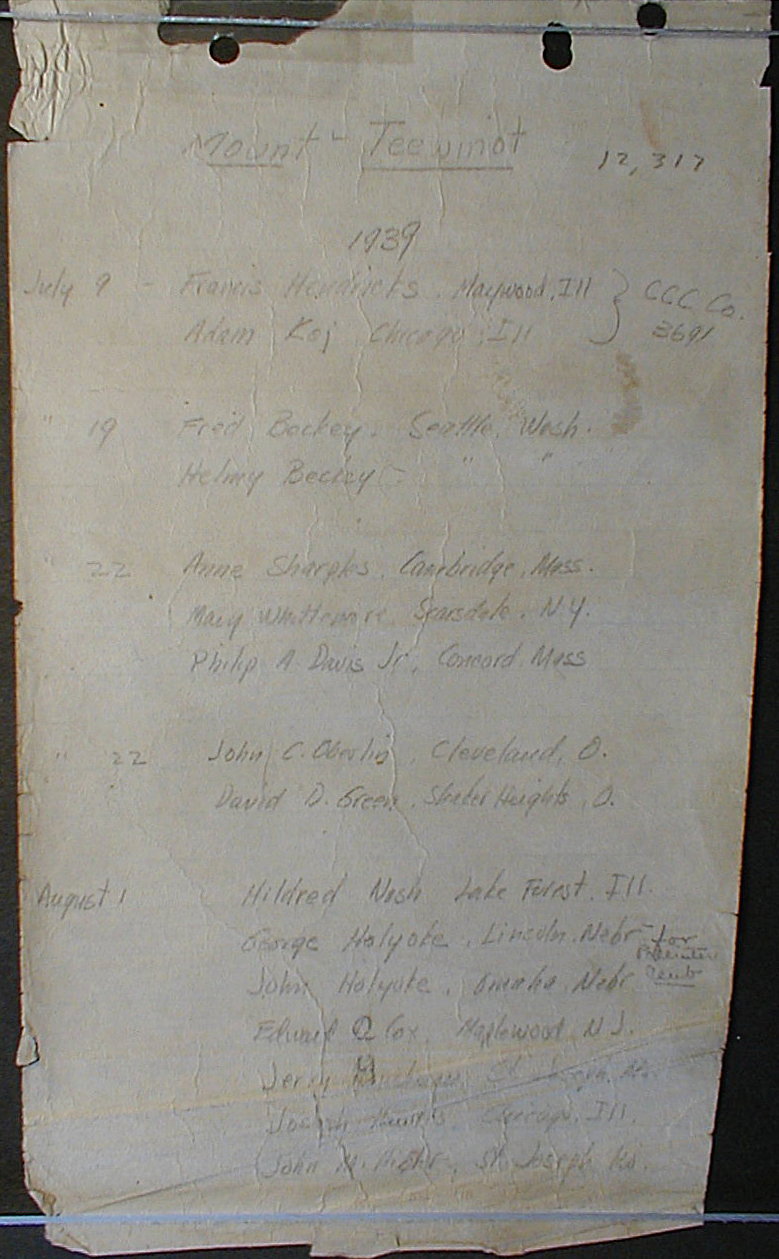 Mount - Teewinot 12,317
1939
July 9 - Francis Hendricks, Maywood, Ill } CCC Co.
Adam Koj Chicago, Ill 3691
" 19 Fred Beckey. Seattle, Wash.
Helmy Beckey - " "
" 22 Anne Sharples, Cambridge, Mass.
Mary Whittemore, Scarsdale, N.Y.
Philip A Davis Jr, Concord, Mass
" 22 John C. Oberlin, Cleveland, O.
David D. Green, Shaker Heights, O.
August 1 Hildred Nash Lake Forest, Ill.
George Holyoke, Lincoln, Nebr - for
John Holyoke, Omaha, Nebr. Club
Edward Cox, Maplewood, N J.
Jerry St. Joseph,
Joseph Chicago, Ill.
John M. St. Joseph